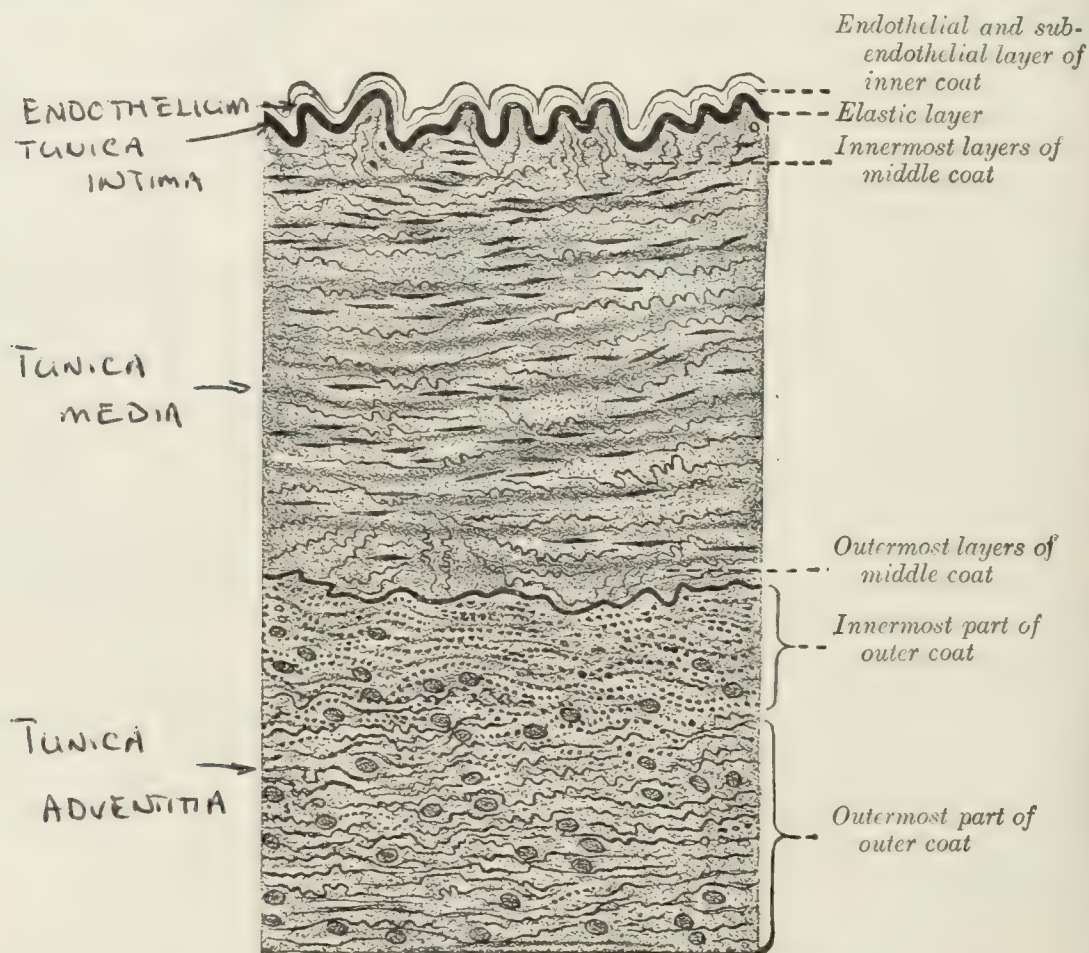 ENDOTHELIUM
TUNICA
INTIMA
TUNICA
MEDIA
TUNICA
ADVENTITIA
Endothelial and sub-
endothelial layer of
inner coat
Elastic layer
Innermost layers of
middle coat
Outermost layers of
middle coat
Innermost part of
outer coat
Outermost part of
outer coat